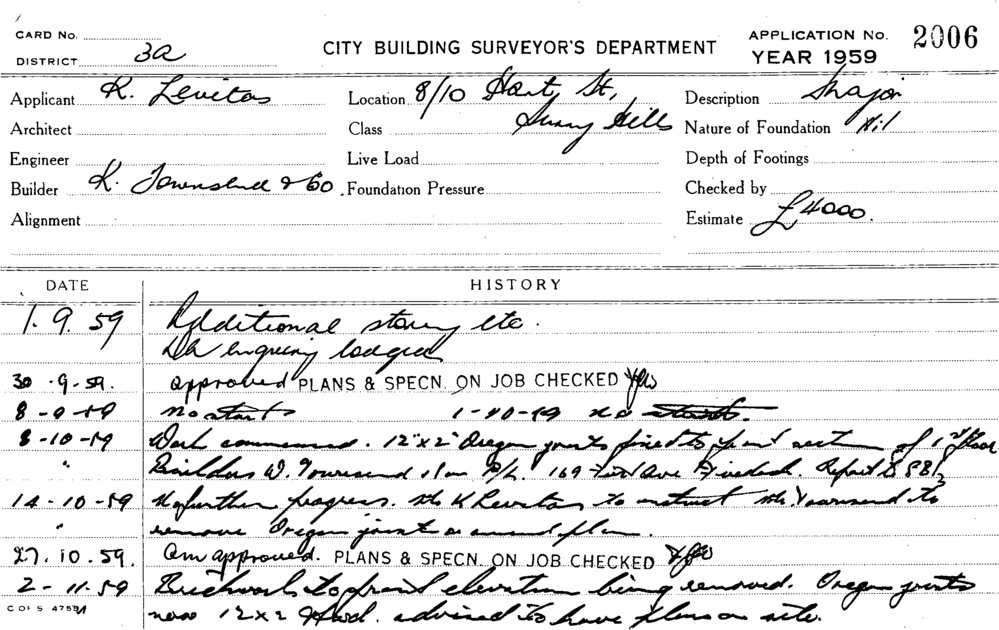 CARD No.
CITY BUILDING SURVEYOR'S DEPARTMENT
APPLICATION No. 2006
DISTRICT 3a
YEAR 1959
Applicant K. Levitas
Location 8/10 Hart St,
Description
Architect
Class Surry Hills
Nature of Foundation Nil
Engineer
Live Load
Depth of Footings
Builder K. Townshend & Co.
Foundation Pressure
Checked by
Alignment
Estimate £4000.
DATE HISTORY
1. 9. 59 Additional storey etc.
lodged
30 . 9 . 59. approved PLANS & SPECN. ON JOB CHECKED Yes
8 - 9 - 59 no start 1-10-59 no start.
8 - 10 - 59 Work commenced. 12"x2" Oregon joists fixed to front section of 1st floor
" Builders W. Townsend & Son P/L. 169 First Ave Fivedock. Report to
14 - 10 - 59 No further progress. Mr K Levitas to instruct Mr Townsend to
" remove Oregon joists or amend plan.
27. 10. 59. Am approved. PLANS & SPECN. ON JOB CHECKED Yes
2 - 11 - 59 Brickwork to front elevation being removed. Oregon joists
now 12x2 Hwd. advised to have plans on site.